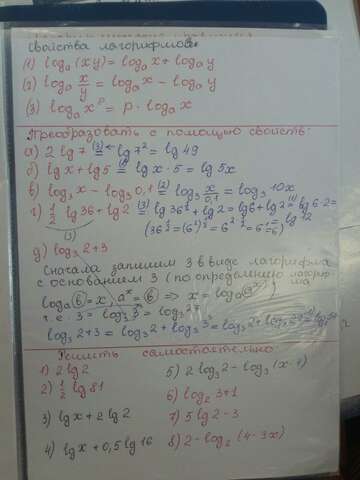 Свойства логарифмов.
(1) logₐ(xy) = logₐx + logₐy
(2) logₐ x/y = logₐx − logₐy
(3) logₐxᵖ = p · logₐx
Преобразовать с помощью свойств:
а) 2 lg 7 (3)= lg 7² = lg 49
б) lg x + lg 5 (1)= lg x · 5 = lg 5x
в) log₃ x − log₃ 0,1 (2)= log₃ x/0,1 = log₃ 10x
г) 1/2 lg 36 + lg 2 (3)= lg 36^(1/2) + lg 2 = lg 6 + lg 2 (1)= lg 6·2 =
= lg 12
д) log₃ 2 + 3
Сначала запишем 3 в виде логарифма
с основанием 3 (по определению логарифма
logₐ(b) = x, aˣ = (b) ⇒ x = logₐ(aˣ)
т.е. 3 = log₃ 3³
log₃ 2 + 3 = log₃ 2 + log₃ 3³ =
Решить самостоятельно:
1) 2 lg 2
2) 1/2 lg 81
3) lg x + 2 lg 2
4) lg x + 0,5 lg 16
5) 2 log₃ 2 − log₃ (x−1)
6) log₂ 3 + 1
7) 5 lg 2 − 3
8) 2 − log₂ (4 − 3x)